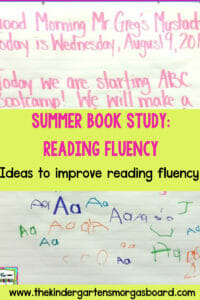 Good Morning Mr. Greg's Mustach
Today is Wednesday, August 9, 201
Today we are starting ABC
Bootcamp! We will make a
SUMMER BOOK STUDY:
READING FLUENCY
Ideas to improve reading fluency
Aa Aa Aa
www.thekindergartensmorgasboard.com